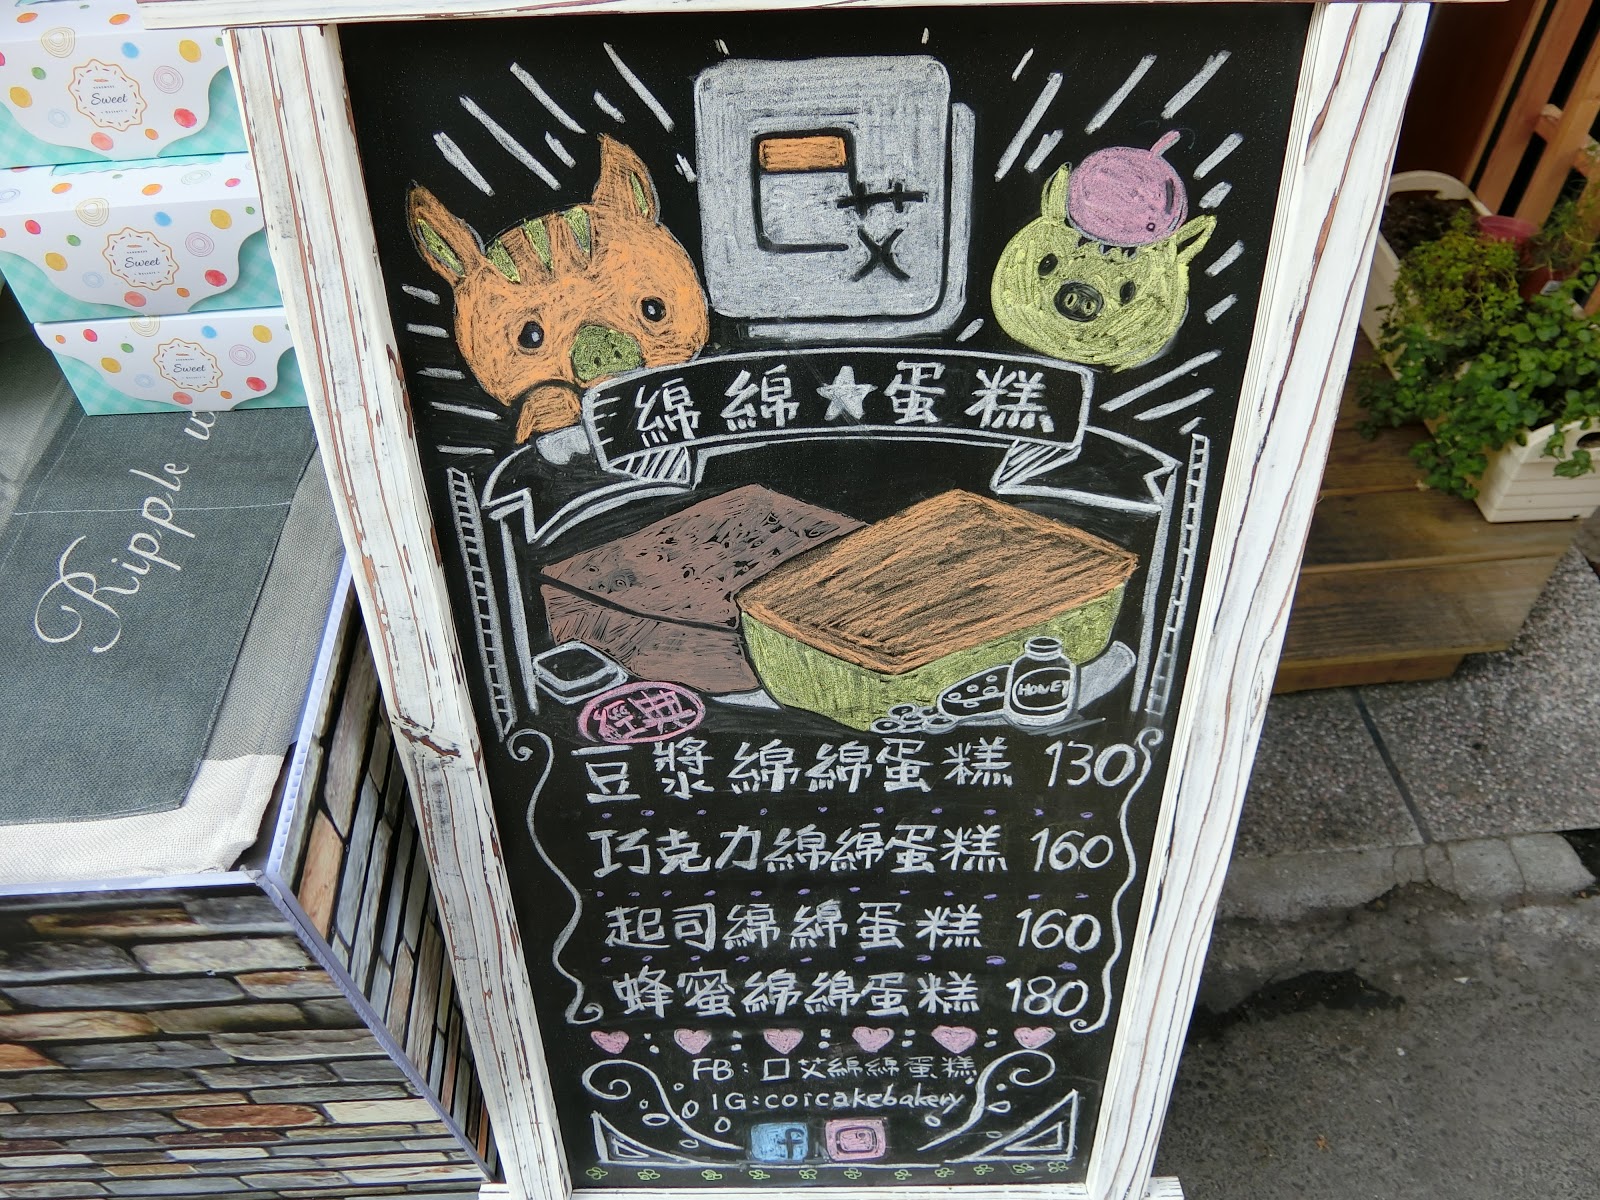 Sweet
Sweet
Sweet
Ripple
艾
綿綿★蛋糕
HONEY
經典
豆漿綿綿蛋糕 130
巧克力綿綿蛋糕 160
起司綿綿蛋糕 160
蜂蜜綿綿蛋糕 180
FB:口艾綿綿蛋糕
IG:coicakebakery
f